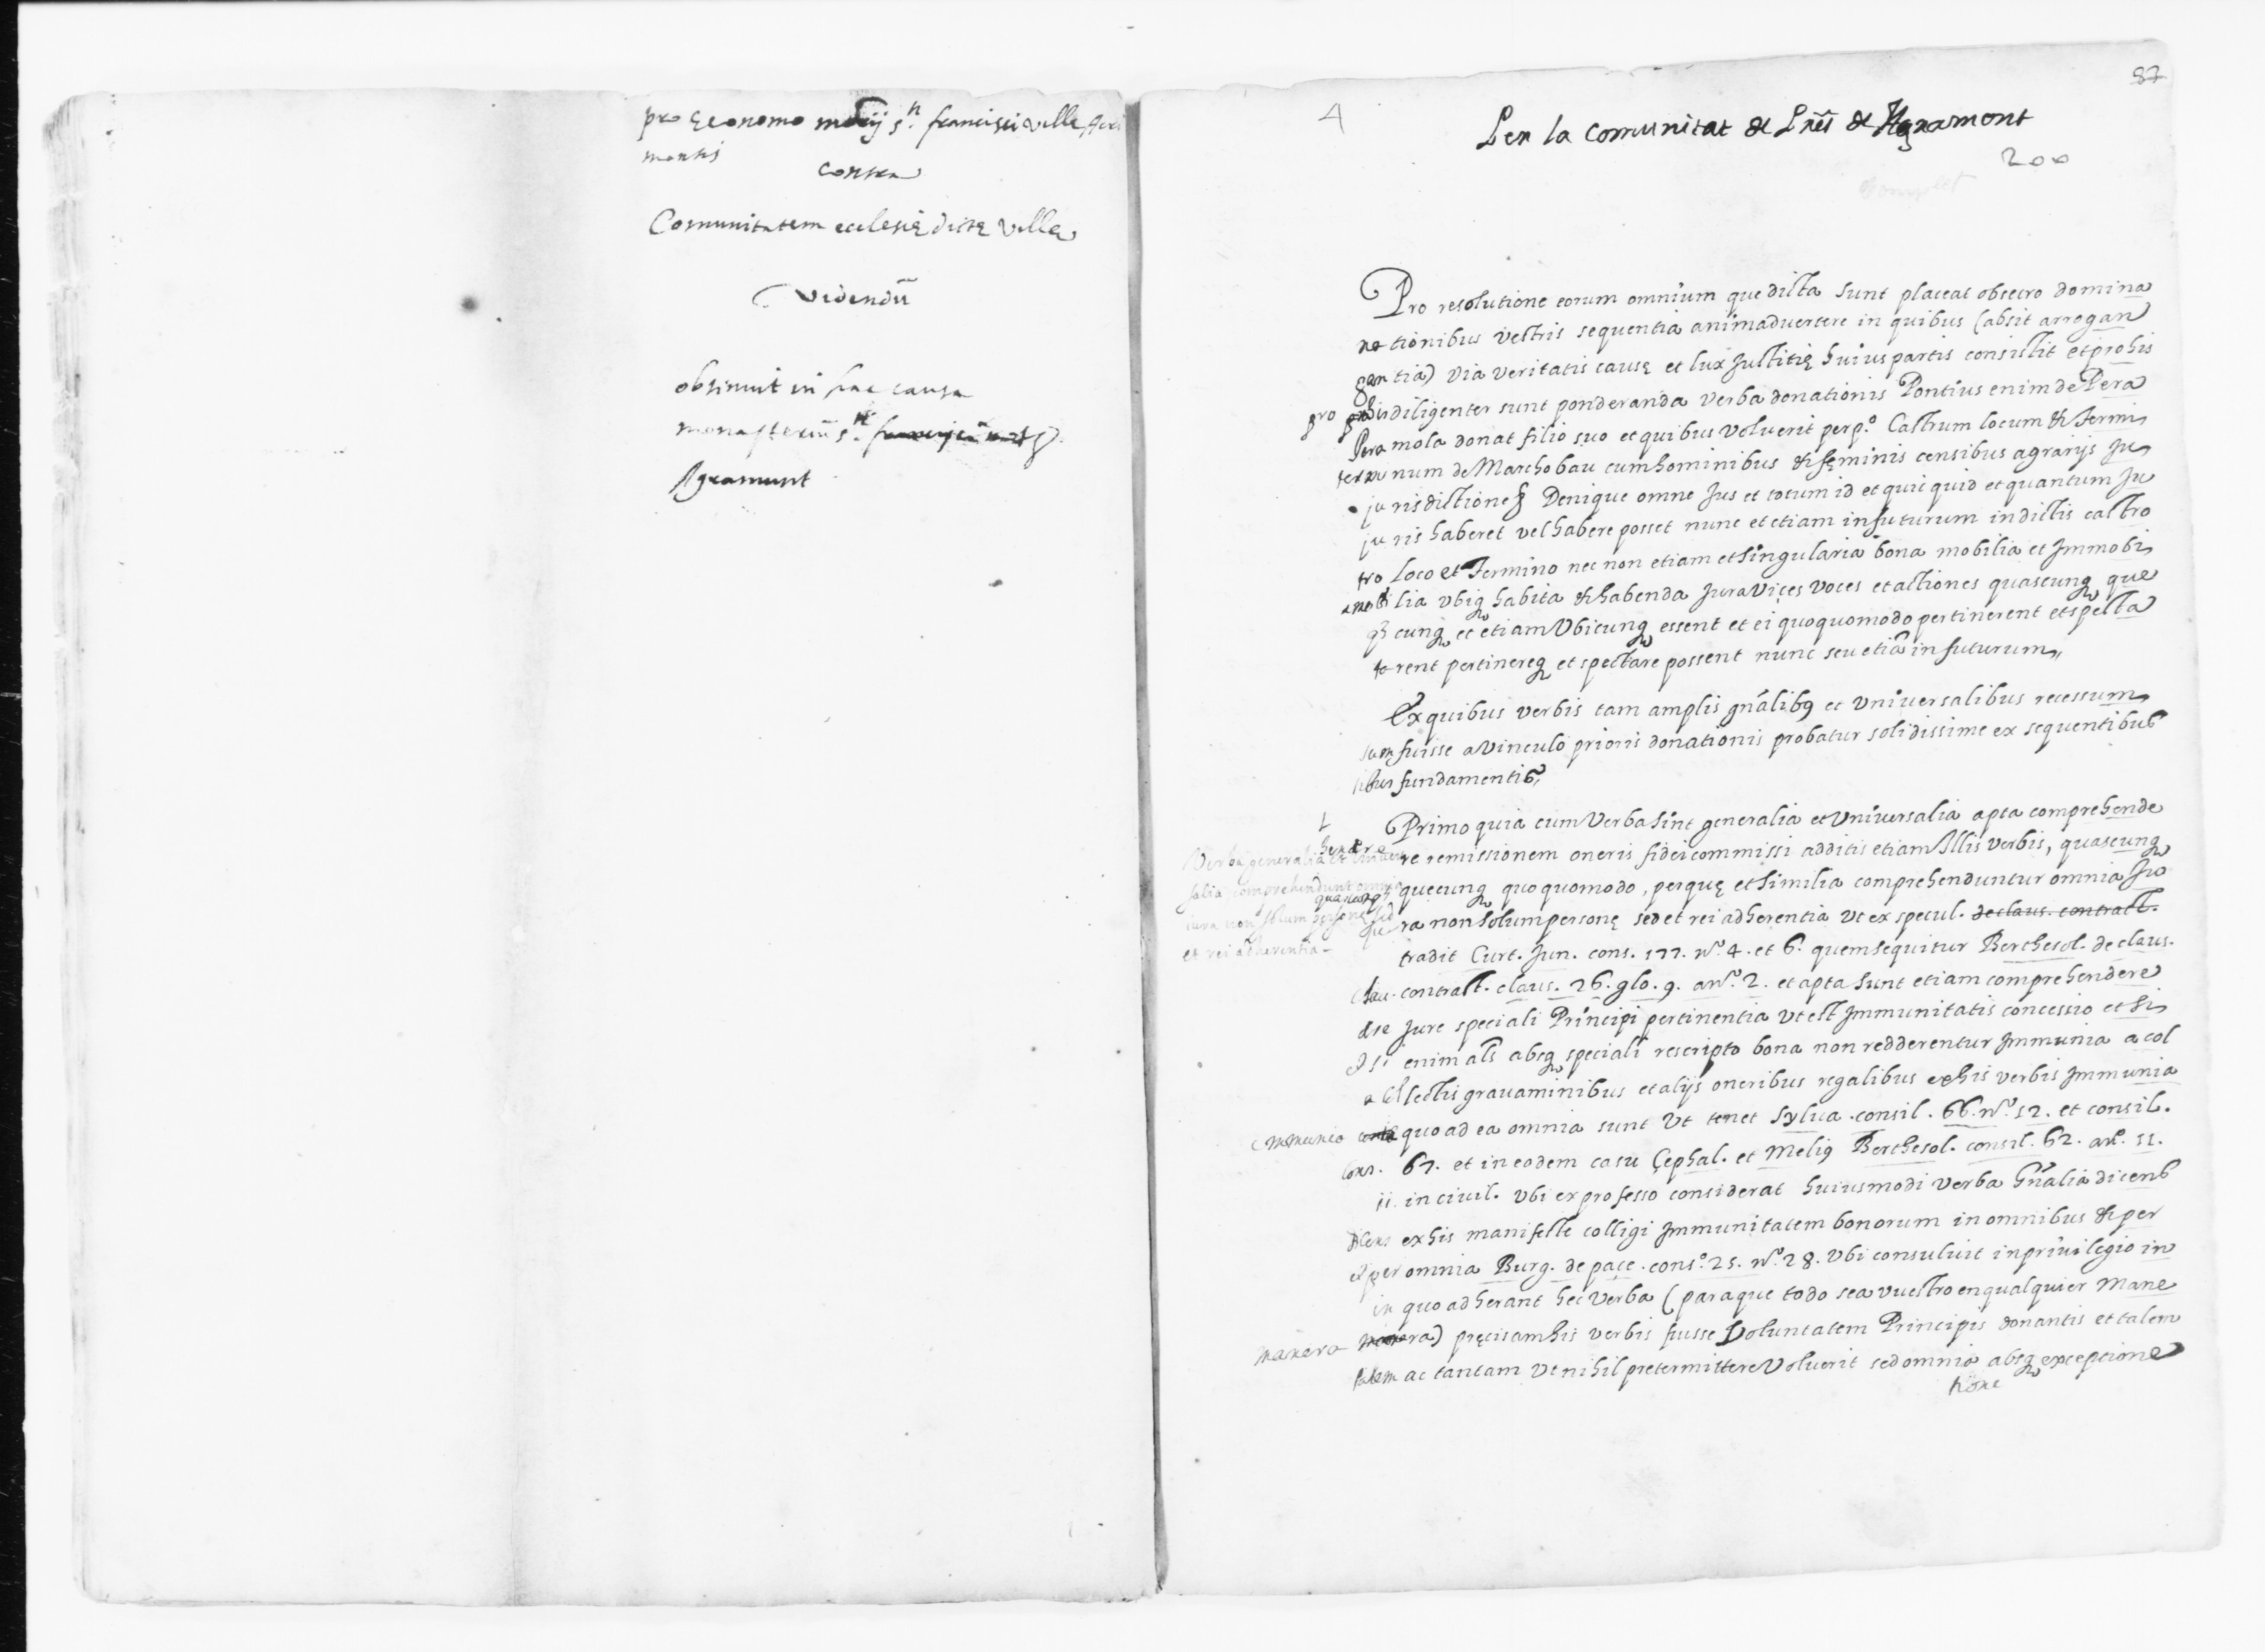 pro Economo mōrij s.ti francisci ville Acri
montis
contra
Comunitatem ecclesię dictę villę
Videndū
obtinuit in hac causa
monasteriū s.ti
Agramunt
87
4
Per la comunitat de Pr̄es de Agramont
200
Complet
Pro resolutione eorum omnium que dicta sunt placeat obsecro domina
na tionibus vestris sequentia animaduertere in quibus (absit arrogan
gan tia) via veritatis causę et lux Justitię huius partis consistit et pro his
pro his diligenter sunt ponderanda verba donationis Pontius enim de Pera
Pera mola donat filio suo et quibus voluerit perp.º Castrum locum & termi
termi num de Marchobau cum hominibus & fęminis censibus agrarijs Ju
ju risdictione & Denique omne Jus et totum id et quicquid et quantum Ju
ju ris haberet vel habere posset nunc et etiam in futurum in dictis castro
tro Loco et Termino nec non etiam et singularia bona mobilia et Jmmobi
lia vbiq habita & habenda Jura vices voces et actiones quascunq que
cunq et etiam Vbicunq essent et ei quoquomodo pertinerent et specta
ta rent pertinereq et spectare possent nunc seu etiā in futurum,
Ex quibus verbis tam amplis gn̄alibꝰ et Vniuersalibus recessum
sum fuisse a vinculo prioris donationis probatur solidissime ex sequentibus
tibus fundamentis,
1
Primo quia cum Verba sint generalia et Vniuersalia apta comprehende
hendere re remissionem oneris fideicommissi additis etiam Jllis verbis, quascunq
quascunq quecunq quoquomodo, perquę et similia comprehenduntur omnia Ju
ju ra non solum personę sed et rei adherentia vt ex specul. de claus. contract.
Verba generalia et vniuer
salia comprehendunt omnia
iura non solum personę sed
et rei adherentia –
tradit Curt. Jun. cons. 177. nº. 4. et 6. quem sequitur Berthesol. de claus.
clau. contract. claus. 26. glo. 9. a nº. 2. et apta sunt etiam comprehendere
dre Jure speciali Principi pertinentia vt est Jmmunitatis concessio et si
et si enim al̄s absq speciali rescripto bona non redderentur Jmmunia a col
a col lectis grauaminibus et alijs oneribus regalibus ex his verbis Jmmunia
immunia quo ad ea omnia sunt Vt tenet Sylua. consil. 66. nº. 12. et consil.
cons. 67. et in eodem casu Cephal. et Meliꝰ Berthesol. consil. 62. nº. 11.
11. in ciuil. vbi ex professo considerat huiusmodi verba Gn̄alia dicens
dicens ex his manifeste colligi Jmmunitatem bonorum in omnibus & per
et per omnia Burg. de pace. cons.º 25. nº. 28. vbi consuluit in priuilegio in
in quo adherant hec verba (para que todo sea vuestro en qualquier mane
manera ra) pręcisam his verbis fuisse Voluntatem Principis donantis et talem
talem ac tantam Vt nihil pretermittere Voluerit sed omnia absq exceptione
tione